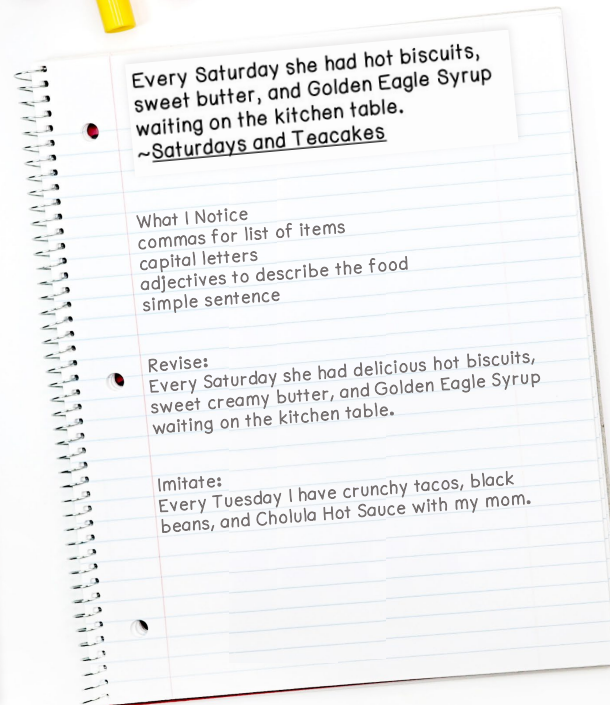 Every Saturday she had hot biscuits,
sweet butter, and Golden Eagle Syrup
waiting on the kitchen table.
~Saturdays and Teacakes
What I Notice
commas for list of items
capital letters
adjectives to describe the food
simple sentence
Revise:
Every Saturday she had delicious hot biscuits,
sweet creamy butter, and Golden Eagle Syrup
waiting on the kitchen table.
Imitate:
Every Tuesday I have crunchy tacos, black
beans, and Cholula Hot Sauce with my mom.